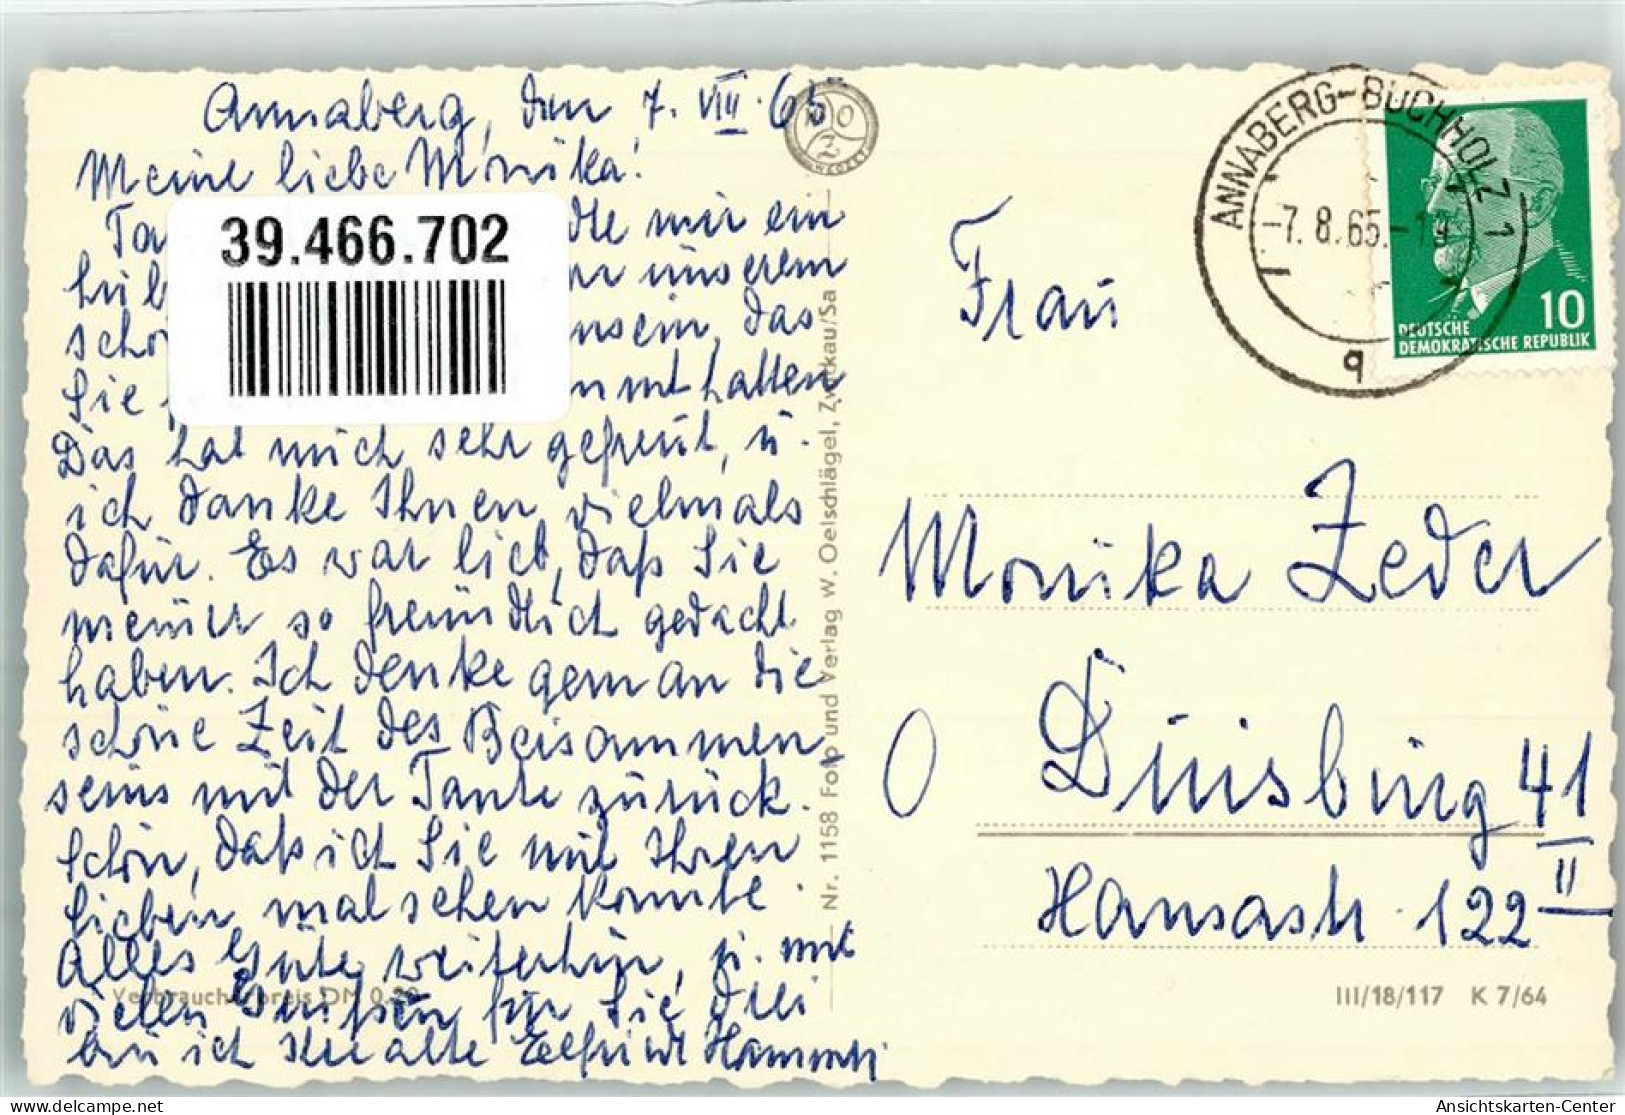 Annaberg, den 7. VIII. 65
Meine liebe Monika!
39.466.702
mir ein
unserem
das
Sie hatten
Das hat mich sehr gefreut, u.
ich danke Ihnen vielmals
dafür. Es war lieb, daß Sie
meiner so freundlich gedacht
haben. Ich denke gern an die
schöne Zeit des Beisammen
seins mit der Tante zurück.
Schön, daß ich Sie mit Ihren
Lieben mal sehen konnte.
Alles Gute weiterhin, u. mit
vielen Grüßen für Sie drei
bin ich Ihre alte Elfriede
Verbraucherpreis DM 0,20
Nr. 1158 Foto und Verlag W. Oelschlägel, Zwickau/Sa
ANNABERG-BUCHHOLZ 1
-7.8.65.-19
q
10
DEUTSCHE
DEMOKRATISCHE REPUBLIK
Frau
Monika Zeder
Duisburg 41
II
Hansastr. 122
III/18/117 K 7/64
delcampe.net
Ansichtskarten-Center